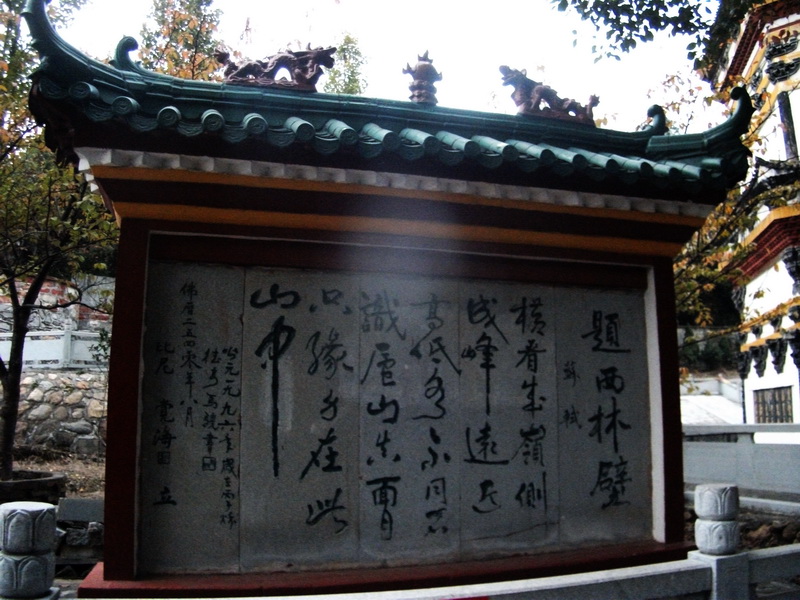 題西林壁
蘇軾
橫看成嶺側
成峰遠近
高低各不同不
識廬山真面目
只緣身在此
山中
公元一九九六年歲在丙子
馬書
佛曆二五四零年八月
比尼 覺海 立